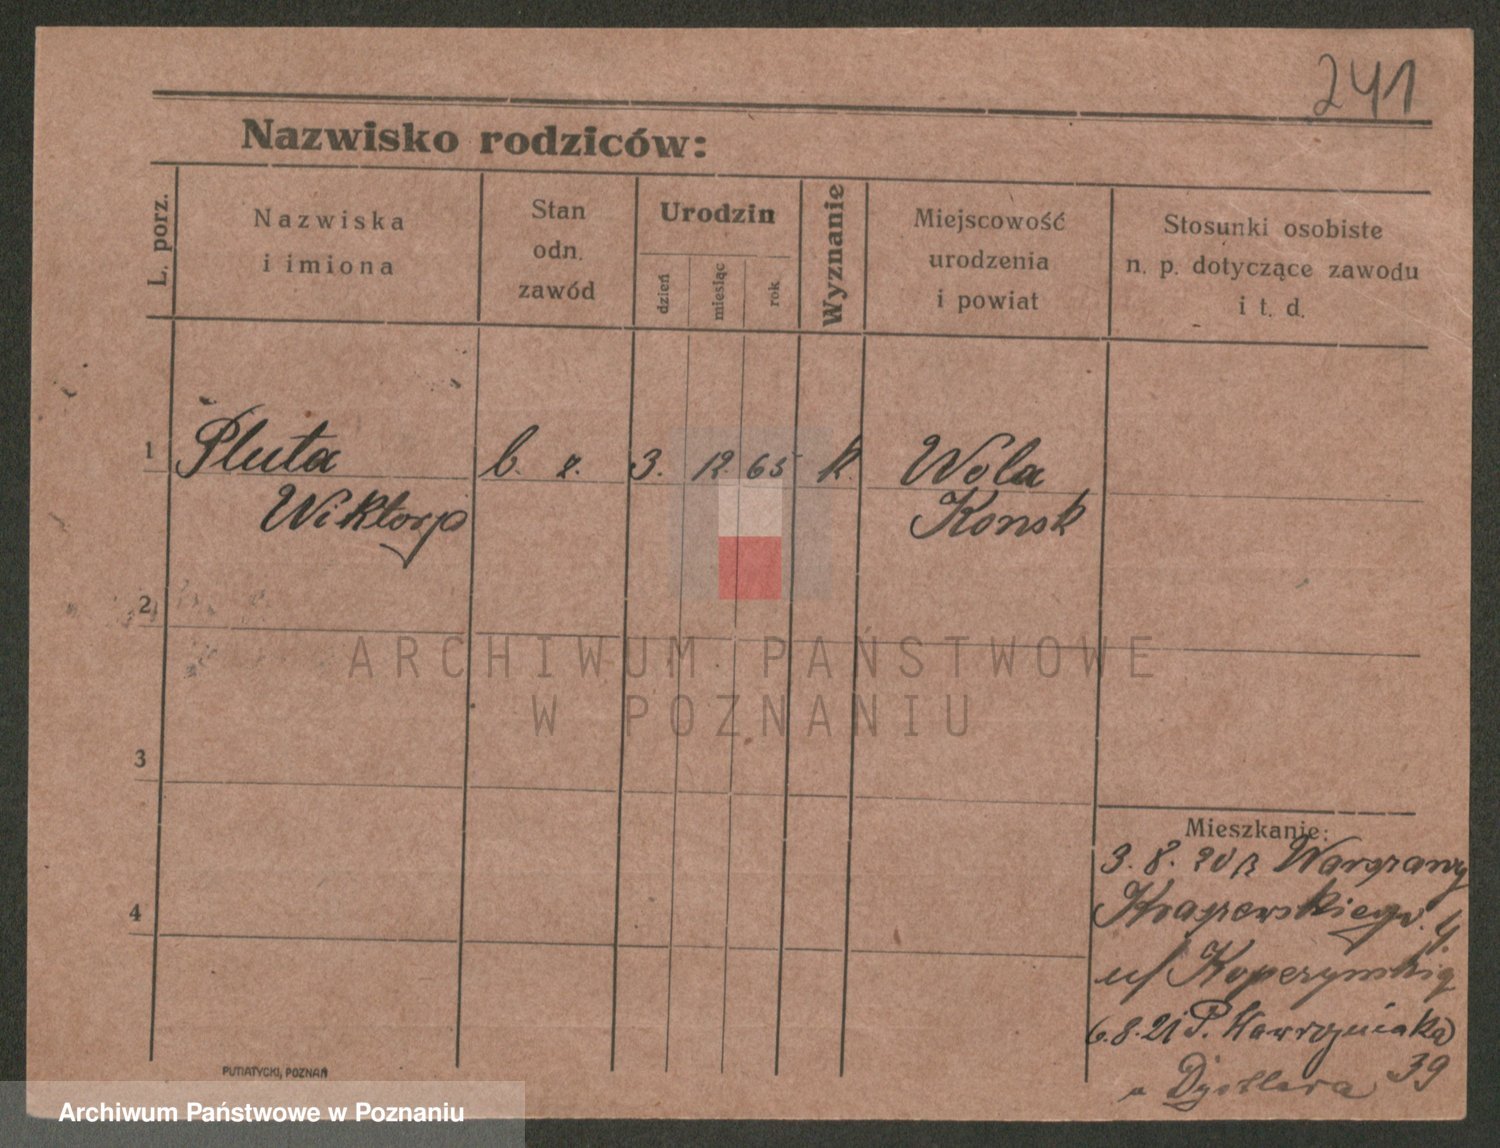 241
Nazwisko rodziców:
L. porz.
Nazwiska
i imiona
Stan
odn.
zawód
Urodzin
dzień
miesiąc
rok
Wyznanie
Miejscowość
urodzenia
i powiat
Stosunki osobiste
n. p. dotyczące zawodu
i t. d.
1 Pluta b. z. 3. 12. 65 k. Wola
Wiktorja Konsk
2
ARCHIWUM PAŃSTWOWE
W POZNANIU
3
Mieszkanie:
3. 8. 20 z Warszawy
4
Kraszewskiego 4.
u/ Koperynskiej
6.8.21 P. Wawrzyniaka 39
u
PUTIATYCKI, POZNAŃ
Archiwum Państwowe w Poznaniu